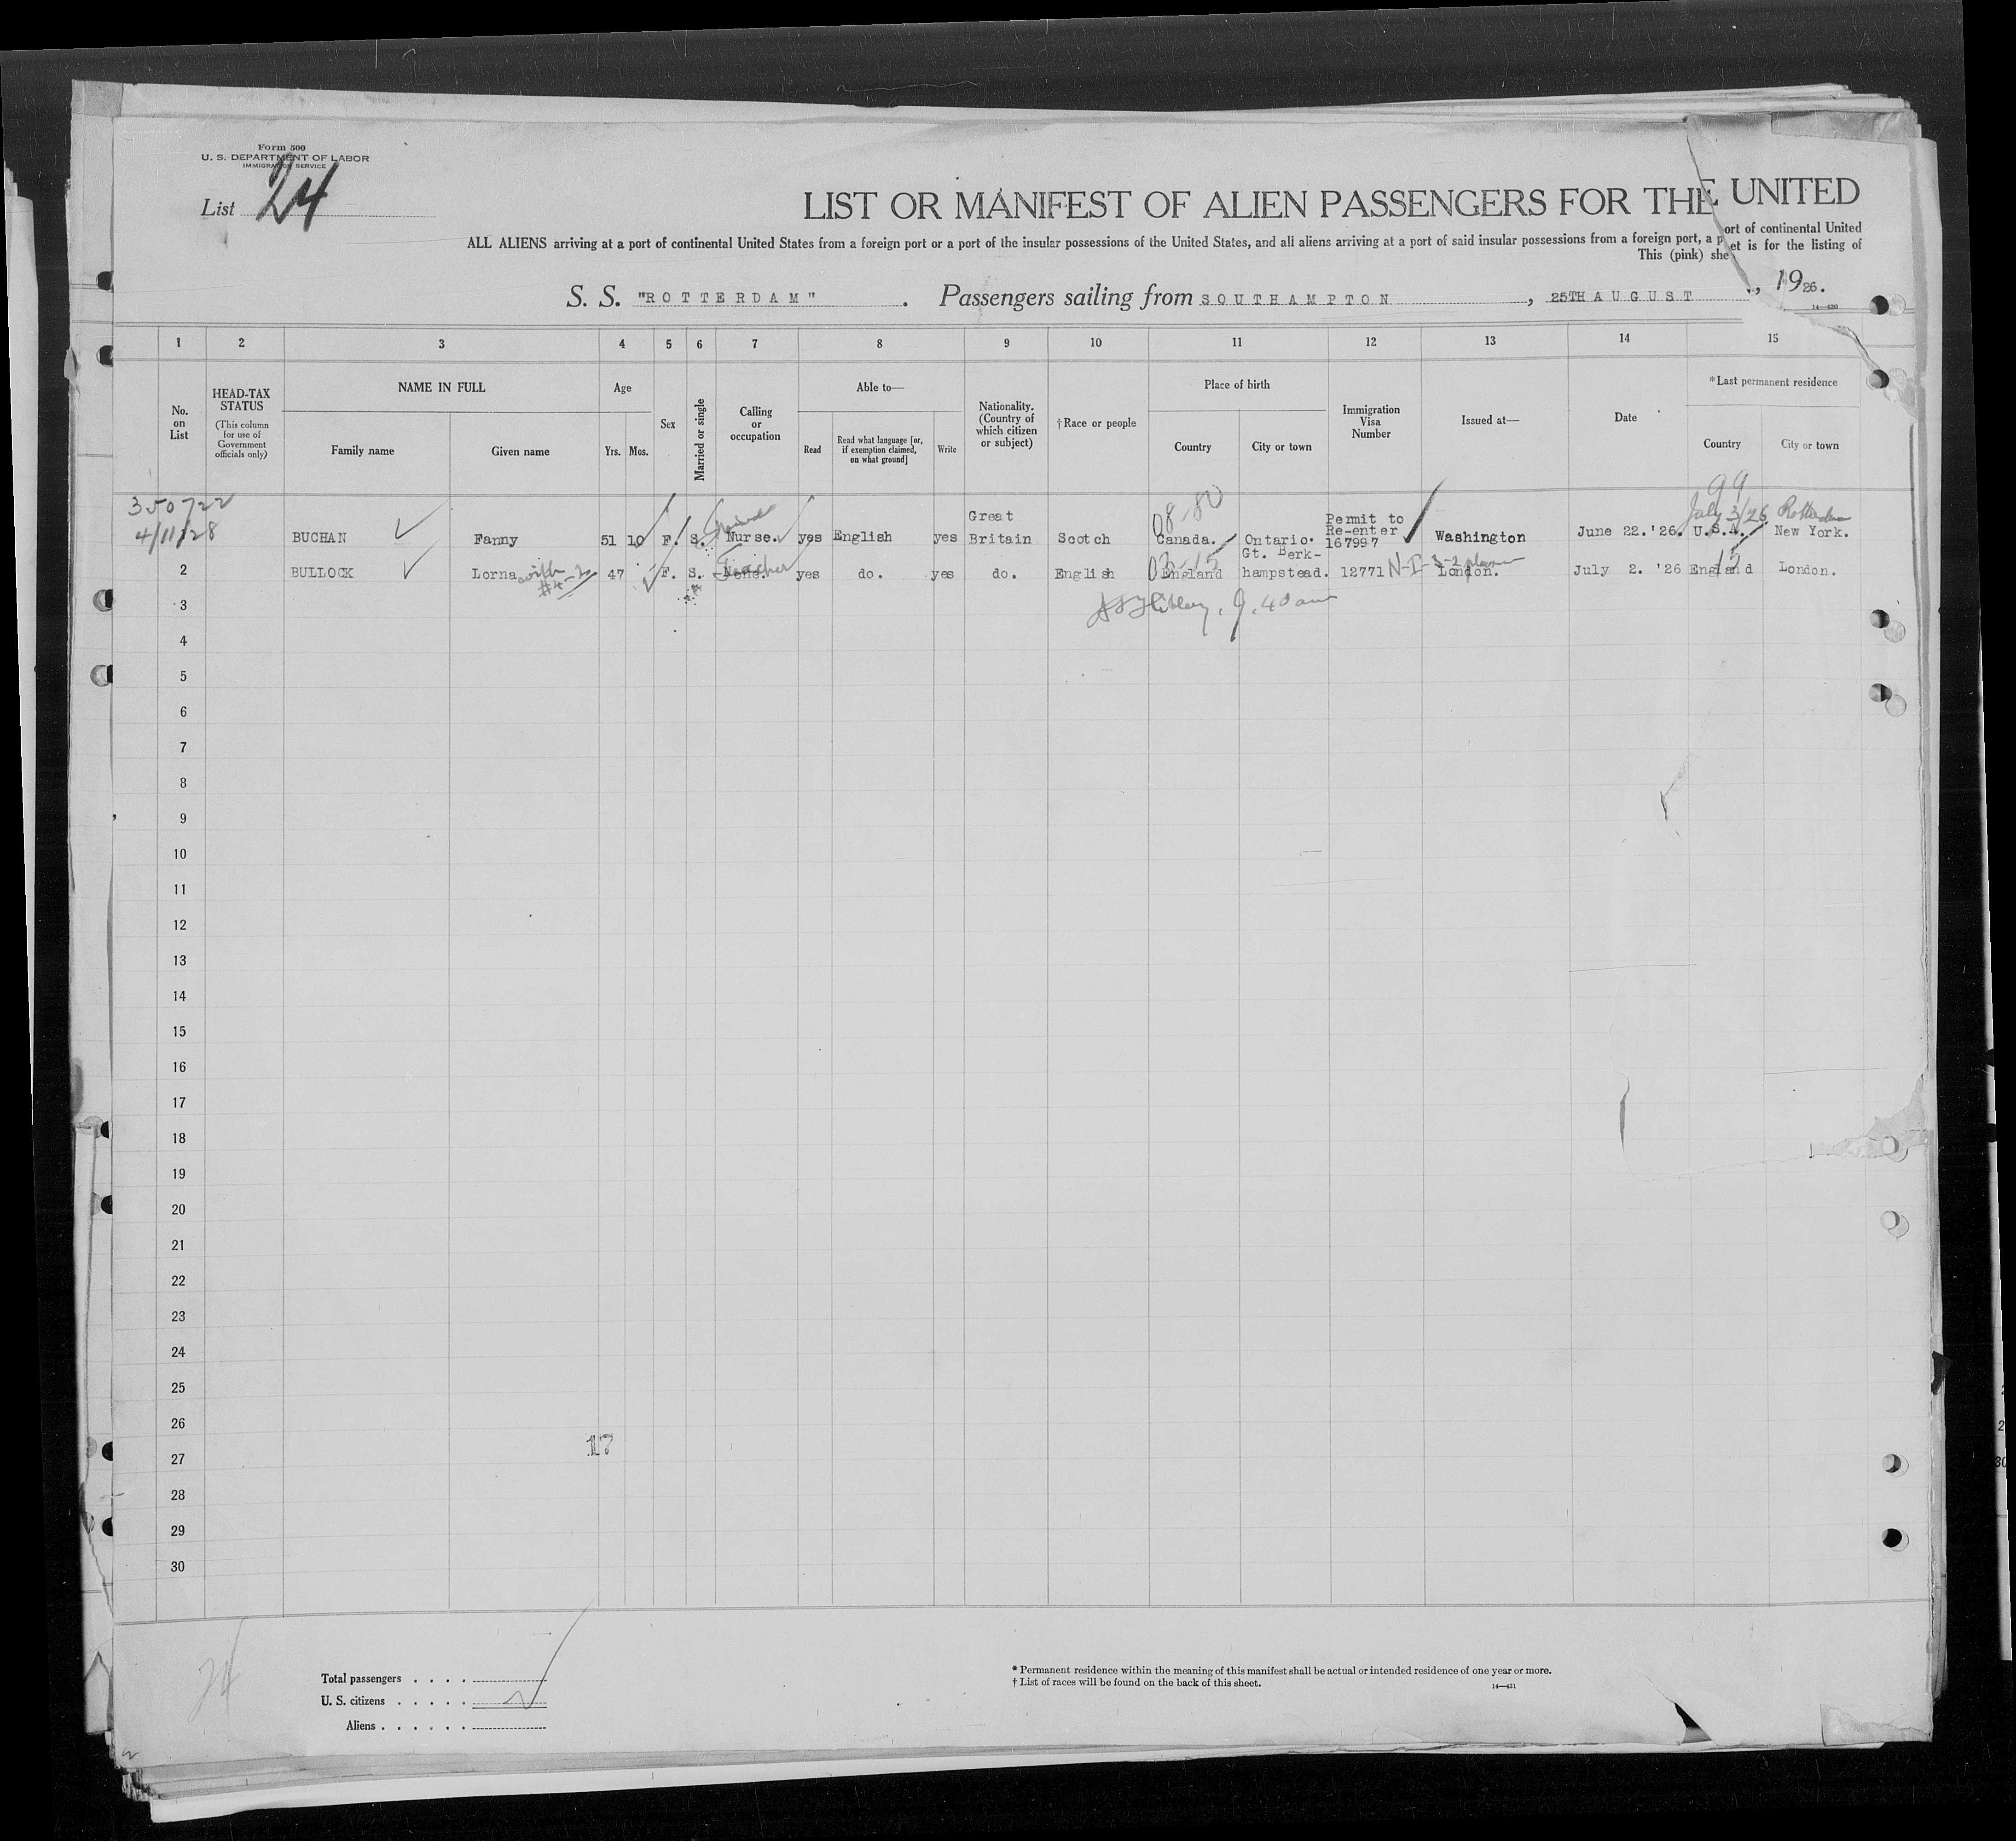 Form 500
U. S. DEPARTMENT OF LABOR
IMMIGRATION SERVICE
List 24
LIST OR MANIFEST OF ALIEN PASSENGERS FOR THE UNITED
ALL ALIENS arriving at a port of continental United States from a foreign port or a port of the insular possessions of the United States, and all aliens arriving at a port of said insular possessions from a foreign port, a port of continental United
This (pink) sheet is for the listing of
S. S. "ROTTERDAM". Passengers sailing from SOUTHAMPTON, 25TH AUGUST, 1926.
14—430
1 2 3 4 5 6 7 8 9 10 11 12 13 14 15
No. on List
HEAD-TAX STATUS
(This column for use of Government officials only)
NAME IN FULL
Family name
Given name
Age
Yrs. Mos.
Sex
Married or single
Calling or occupation
Able to—
Read
Read what language [or, if exemption claimed, on what ground]
Write
Nationality. (Country of which citizen or subject)
†Race or people
Place of birth
Country
City or town
Immigration Visa Number
Issued at—
Date
*Last permanent residence
Country
City or town
350722
4/11/28
99
08-80
July 3/26 Rotterdam
BUCHAN Fanny 51 10 F. S. Nurse. yes English yes Great Britain Scotch Canada. Ontario. Permit to Re-enter 167997 Washington June 22.'26. U.S.A. New York.
2 BULLOCK Lorna with 47 F. S. None. Teacher yes do. yes do. English England Gt. Berk-hampstead. 12771 London. July 2. '26 England London.
3 9.40 am
4
5
6
7
8
9
10
11
12
13
14
15
16
17
18
19
20
21
22
23
24
25
26
17
27
28
29
30
24
Total passengers . . . .
U. S. citizens . . . . .
Aliens . . . . . .
* Permanent residence within the meaning of this manifest shall be actual or intended residence of one year or more.
† List of races will be found on the back of this sheet.
14—431